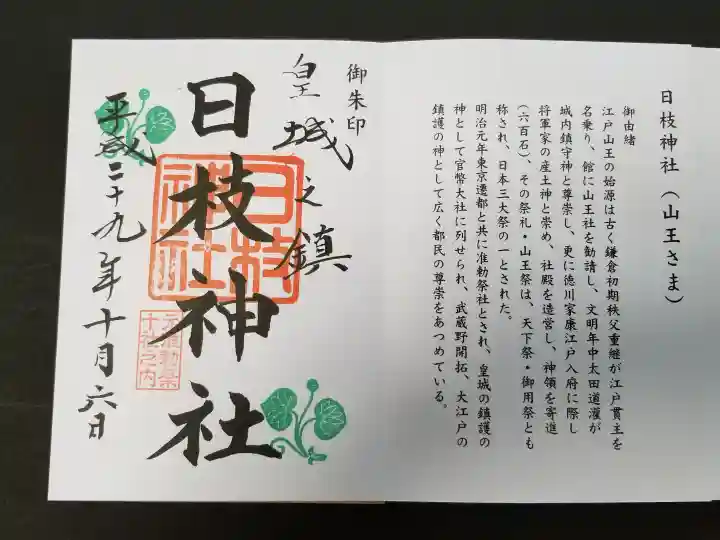 日枝神社(山王さま)
御由緒
江戸山王の始源は古く鎌倉初期秩父重継が江戸貫主を
名乗り、館に山王社を勧請し、文明年中太田道灌が
城内鎮守神と尊崇し、更に徳川家康江戸入府に際し
将軍家の産土神と崇め、社殿を造営し、神領を寄進
(六百石)、その祭礼・山王祭は、天下祭・御用祭とも
称され、日本三大祭の一とされた。
明治元年東京遷都と共に准勅祭社とされ、皇城の鎮護の
神として官幣大社に列せられ、武蔵野開拓、大江戸の
鎮護の神として広く都民の尊崇をあつめている。
御朱印
皇城之鎮
日枝神社
日枝
神社
元准勅祭
十社之内
平成二十九年十月六日